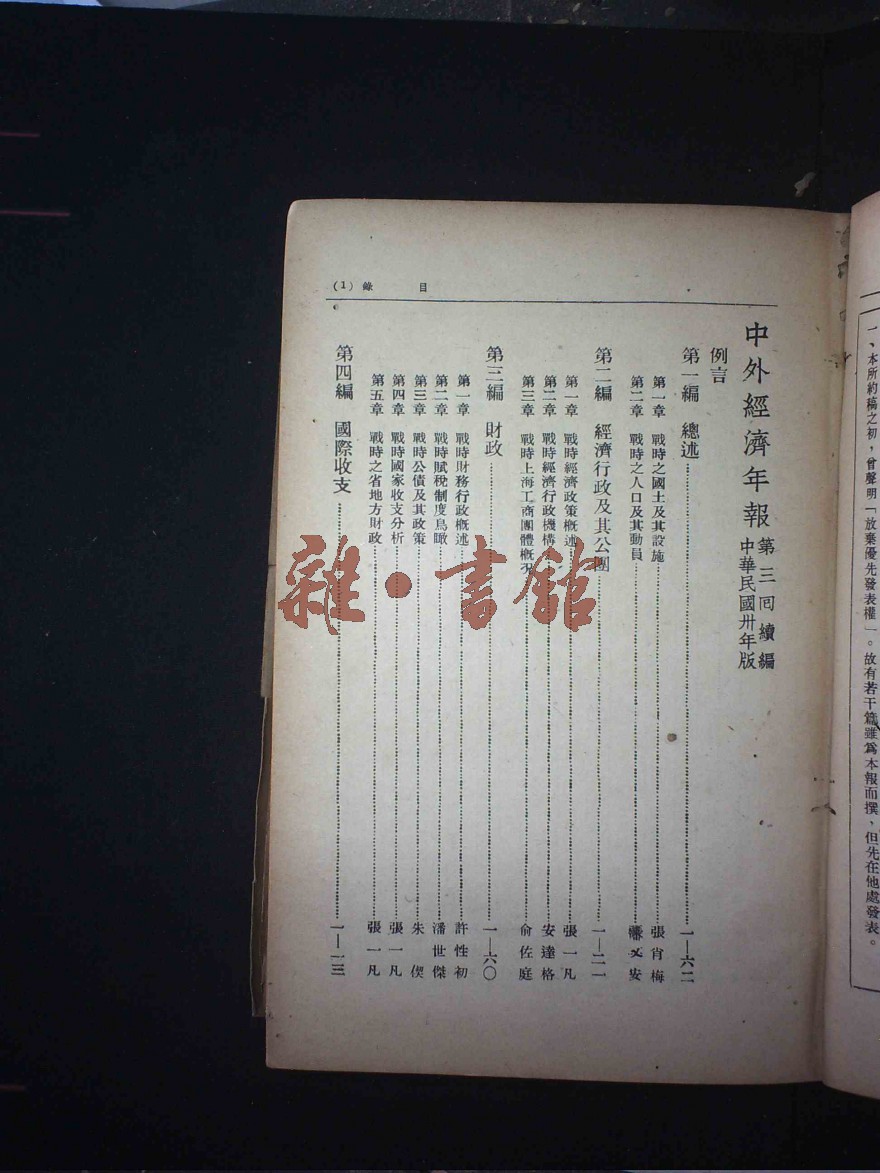 目錄 (1)
中外經濟年報 第三回續編
中華民國卅年版
例言
第一編 總述……一—六二
第一章 戰時之國土及其設施……張肖梅
第二章 戰時之人口及其動員……安
第二編 經濟行政及其公團……一—二一
第一章 戰時經濟政策概述……張一凡
第二章 戰時經濟行政機構……安達格
第三章 戰時上海工商團體概況……俞佐庭
第三編 財政……一—六〇
第一章 戰時財務行政概述……許性初
第二章 戰時賦稅制度鳥瞰……潘世傑
第三章 戰時公債及其政策……朱偰
第四章 戰時國家收支分析……張一凡
第五章 戰時之省地方財政……張一凡
第四編 國際收支……一—一三
一、本所約稿之初，曾聲明「放棄優先發表權」。故有若干篇雖爲本報而撰，但先在他處發表。
雜·書館